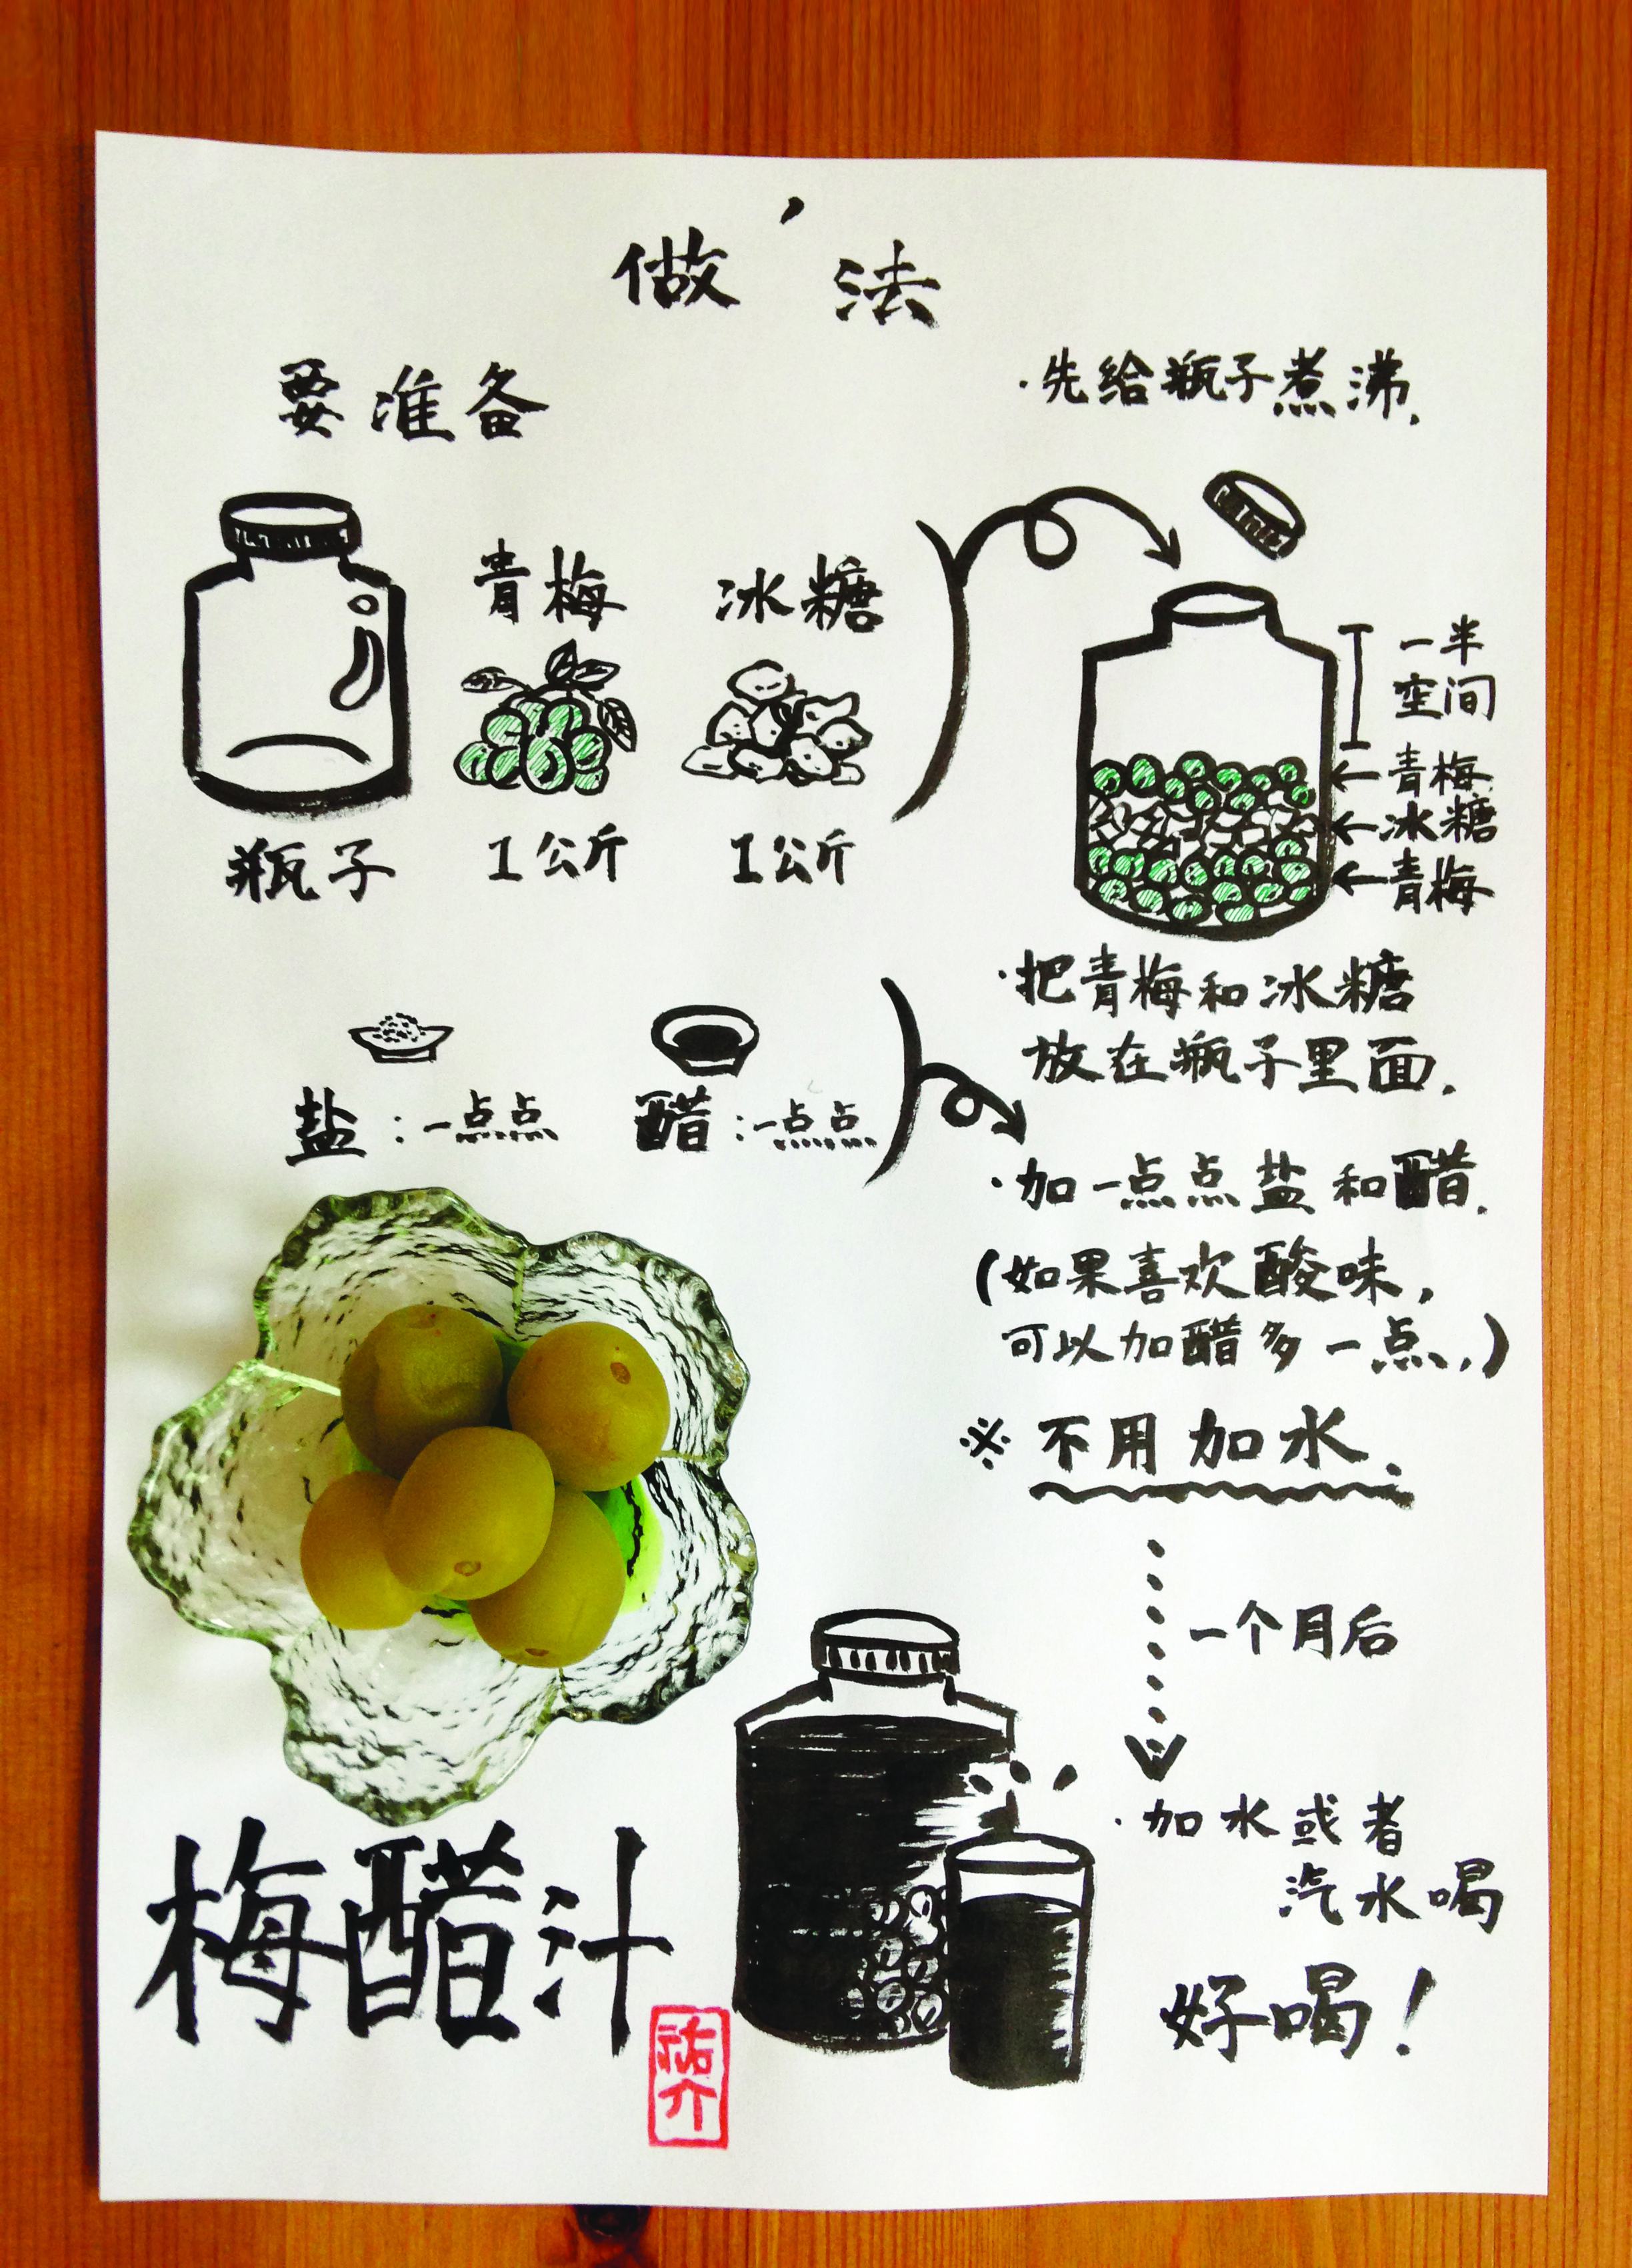 做法
要准备
瓶子
青梅
1公斤
冰糖
1公斤
·先给瓶子煮沸.
一半
空间
←青梅
←冰糖
←青梅
·把青梅和冰糖
放在瓶子里面.
盐:一点点
醋:一点点
·加一点点盐和醋.
(如果喜欢酸味,
可以加醋多一点.)
※不用加水.
一个月后
·加水或者
汽水喝
好喝!
梅醋汁
祐介